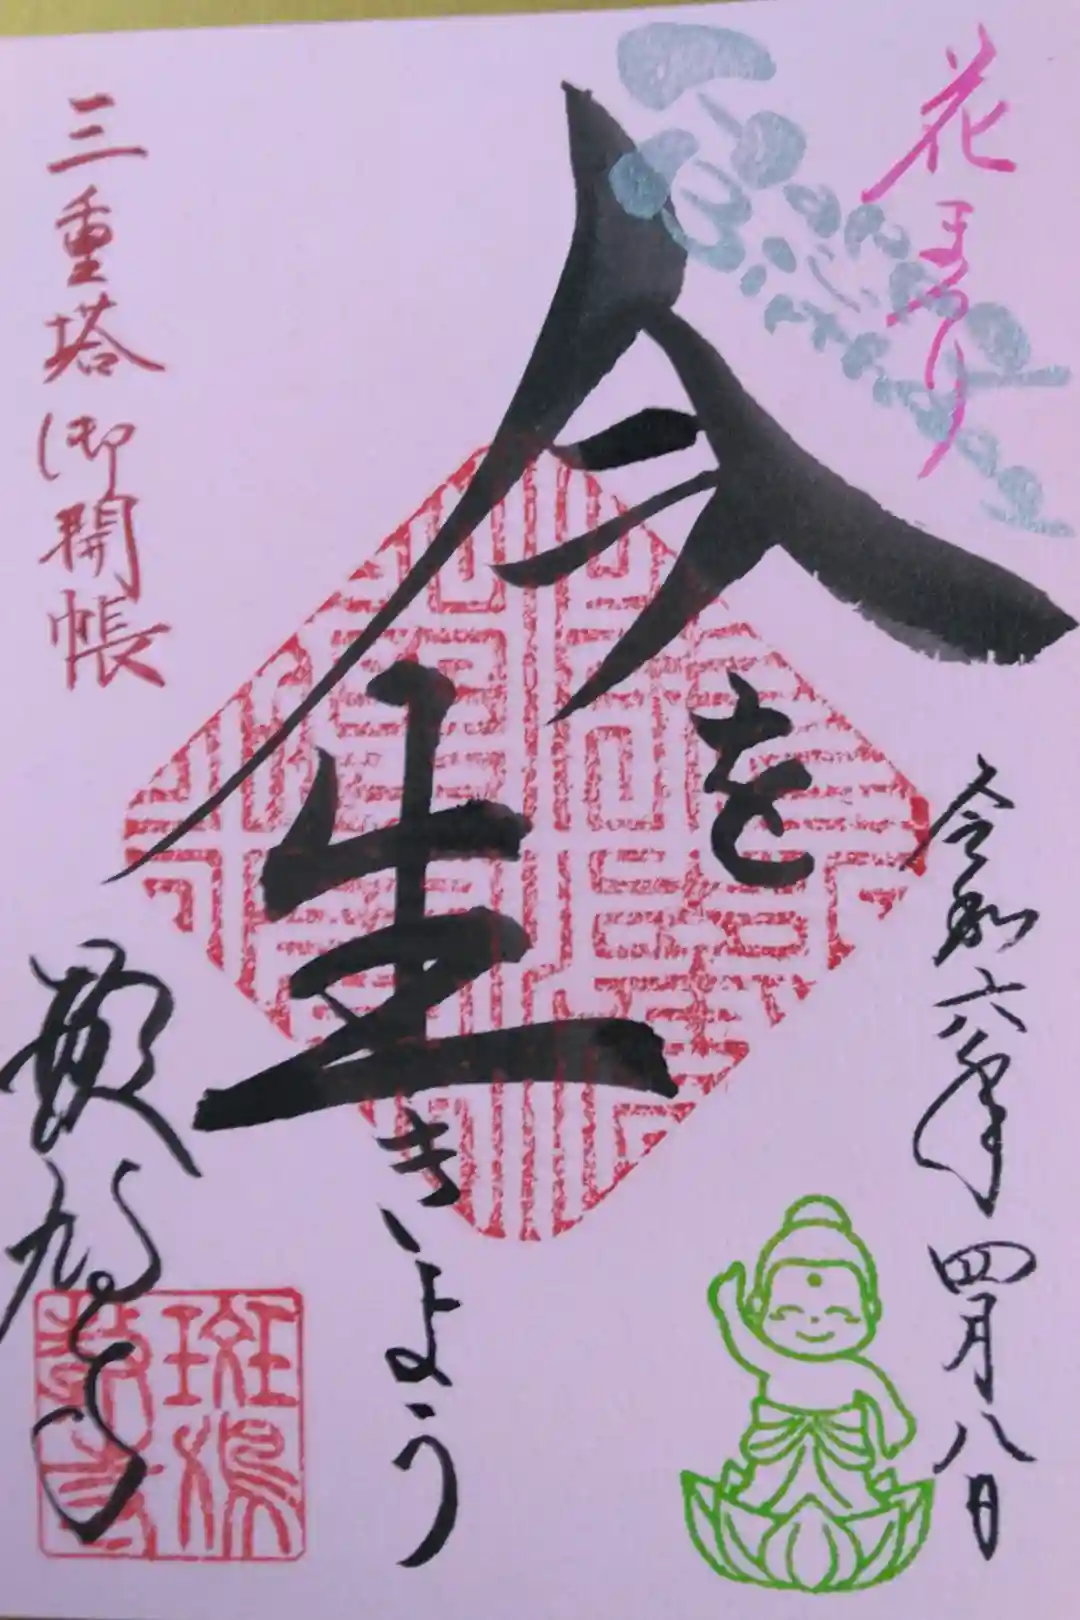 花まつり
令和六年四月八日
今を
生きよう
三重塔御開帳
斑鳩